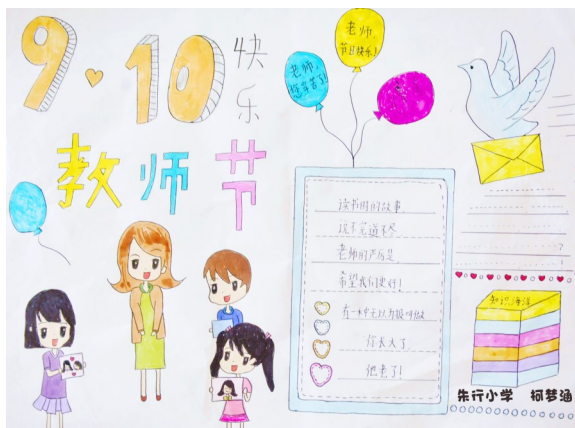 9·10
快乐
教师节
老师,
您辛苦了!
老师,
节日快乐!
读书时的故事,
说不完道不尽
老师的严厉是
希望我们更好!
有一种无以为报叫做
你长大了,
他老了!
知识海洋
朱行小学 柯梦涵